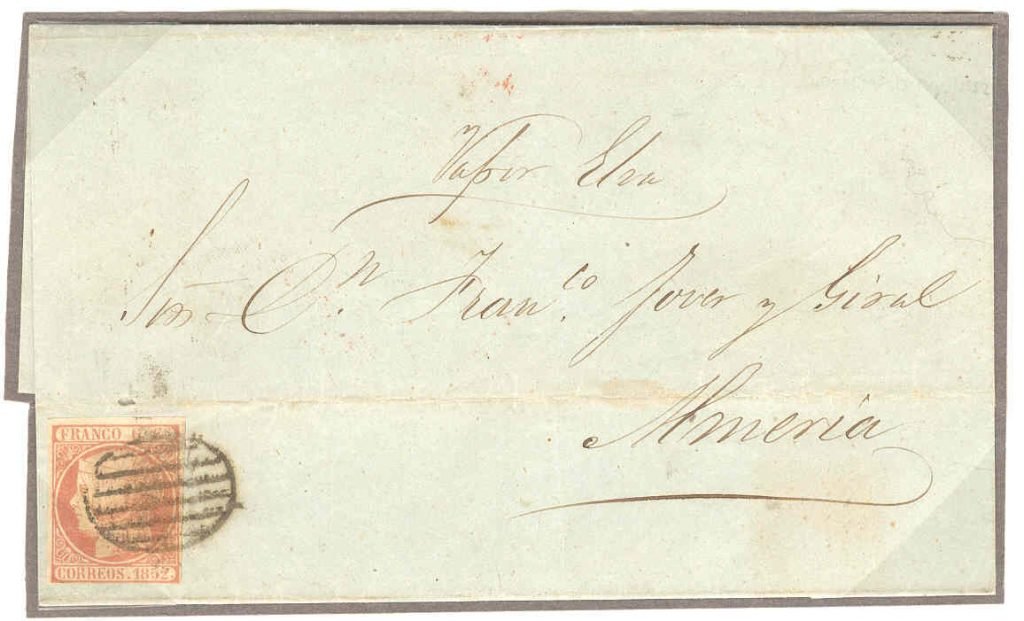 Vapor Elva
Sor. Dn. Franco. Jover y Giral
Almeria
FRANCO
CORREOS. 1852